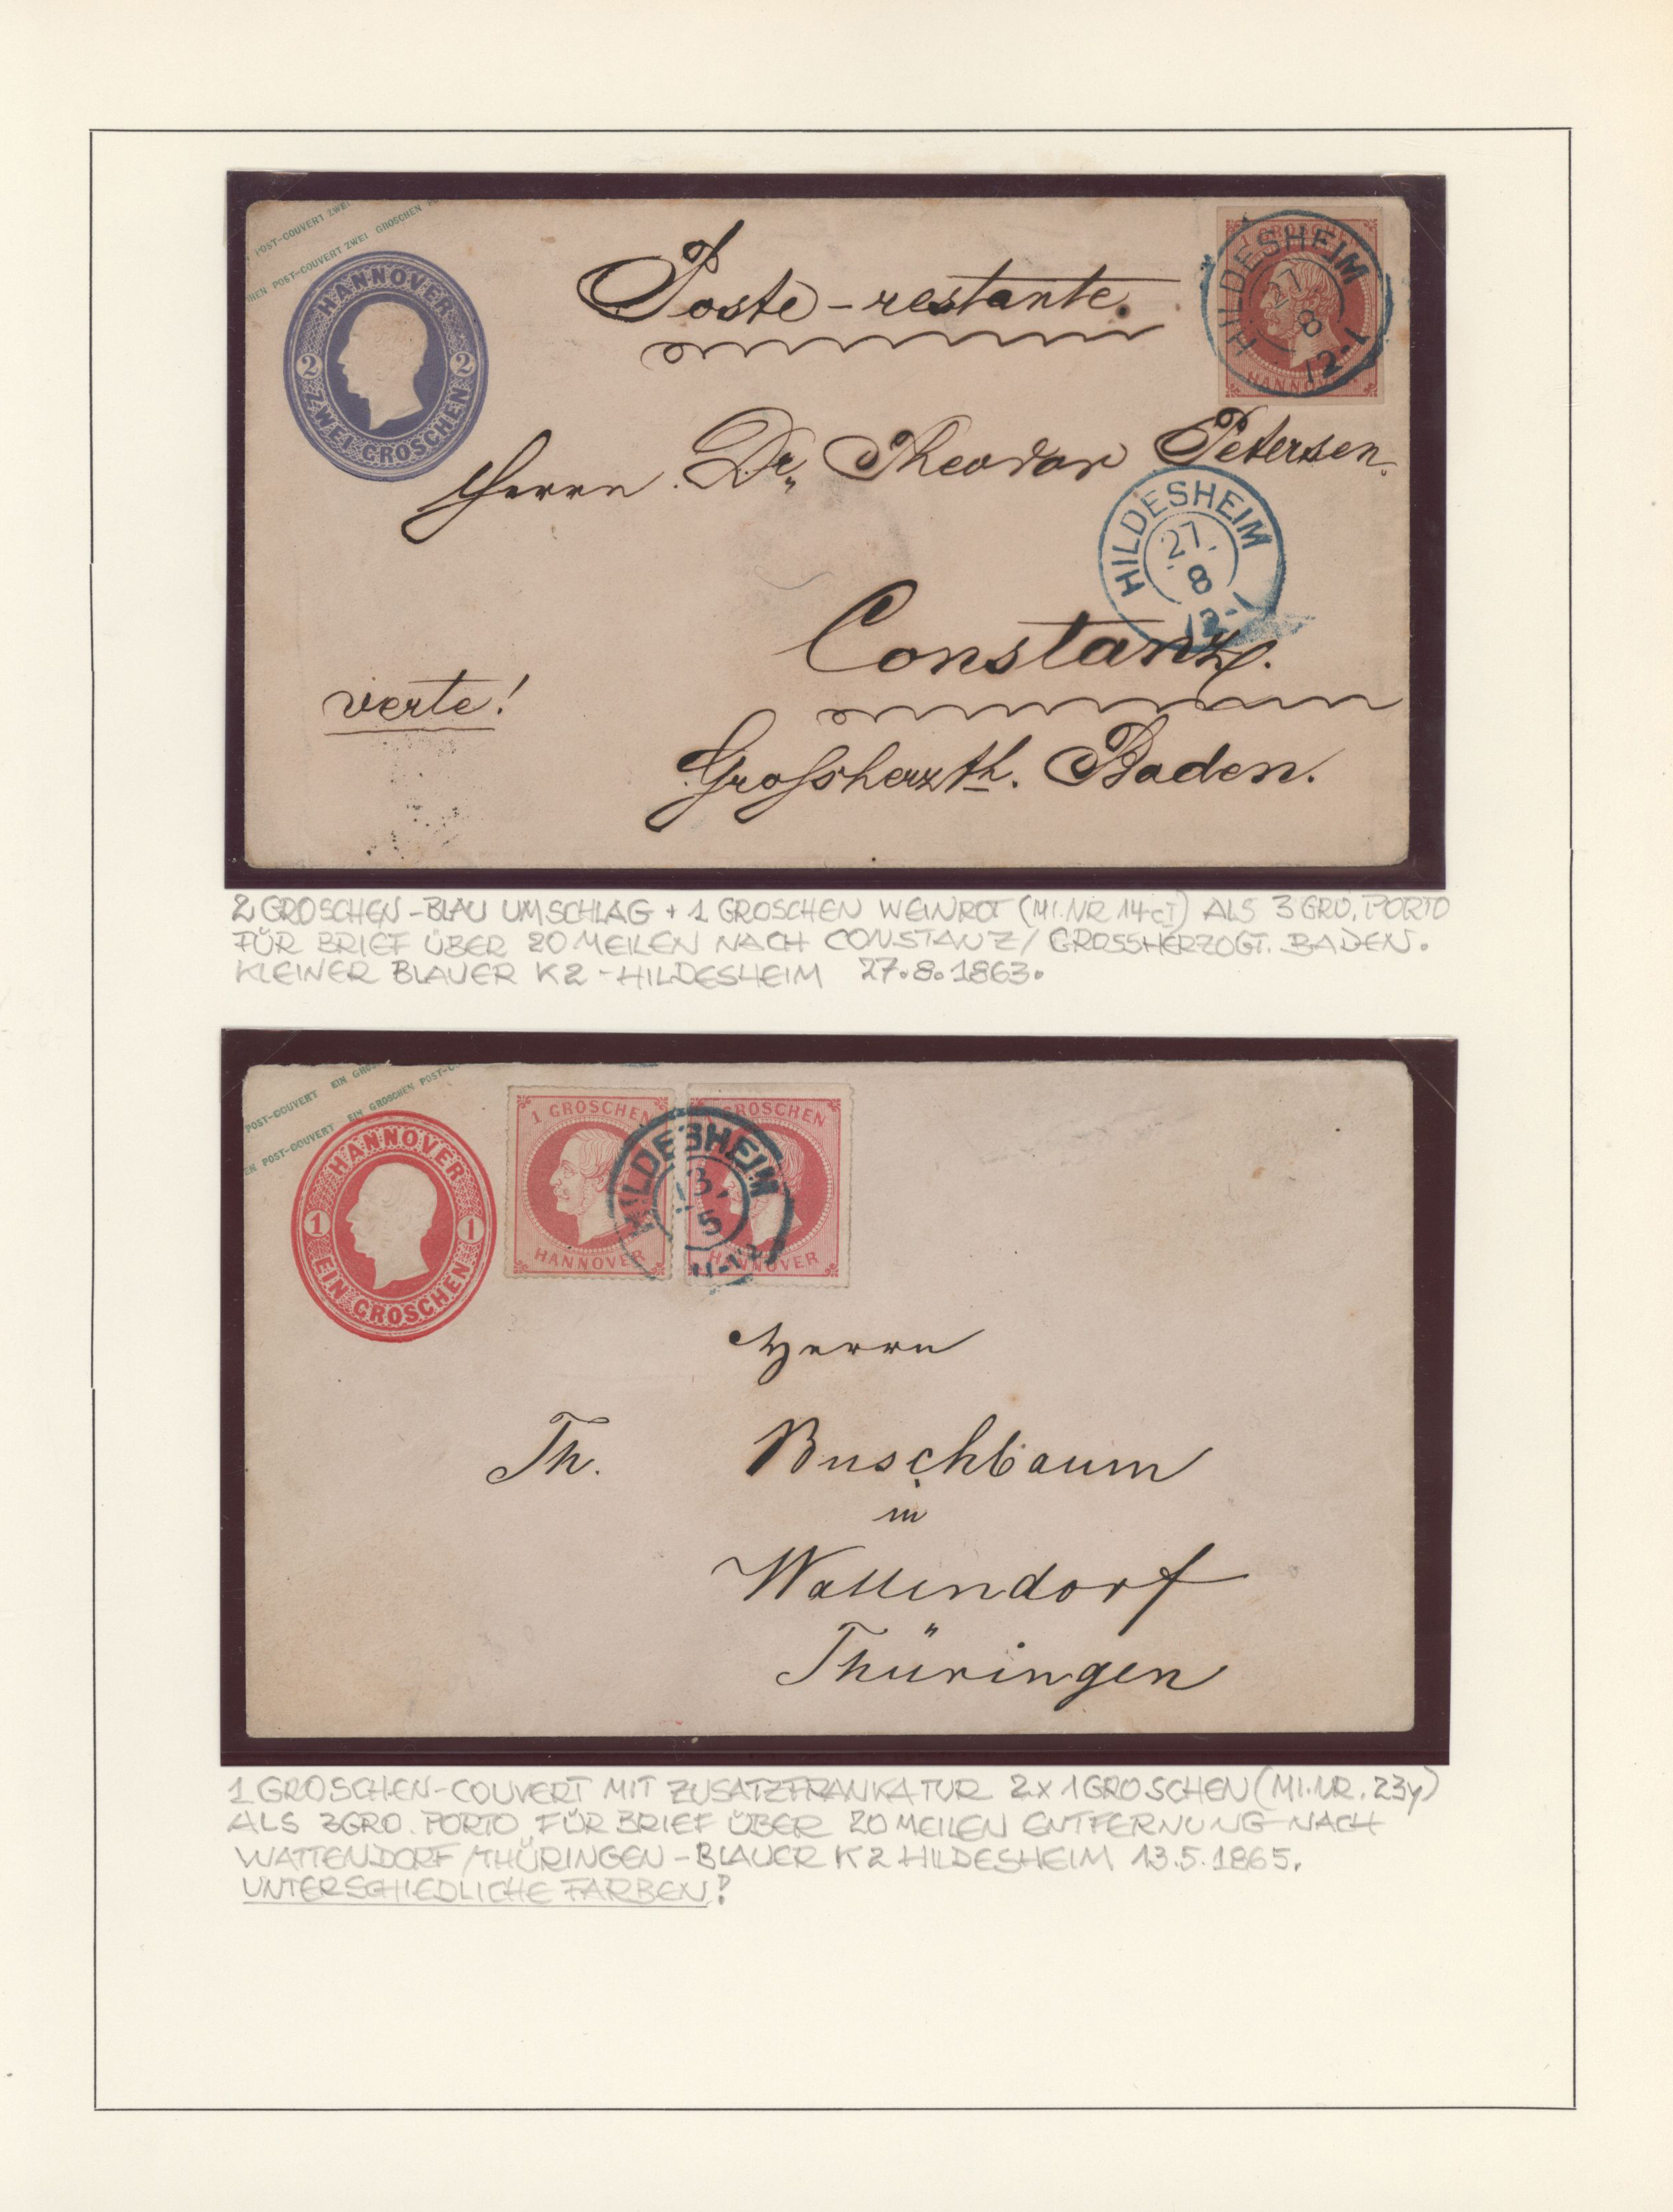 POST-COUVERT ZWEI
POST-COUVERT ZWEI GROSCHEN
HANNOVER
2 2
ZWEI GROSCHEN
Poste-restante.
1 GROSCHEN
HANNOVER
HILDESHEIM
27
8
12-1
Herrn Dr. Theodor Petersen.
HILDESHEIM
27.
8
12-1
Constanz.
verte!
Grossherzth. Baden.
2 GROSCHEN-BLAU UMSCHLAG + 1 GROSCHEN WEINROT (MI.NR 14cI) ALS 3 GRO. PORTO
FÜR BRIEF ÜBER 20 MEILEN NACH CONSTANZ/GROSSHERZOGT. BADEN.
KLEINER BLAUER K2-HILDESHEIM 27.8.1863.
POST-COUVERT EIN
POST-COUVERT EIN GROSCHEN POST-
HANNOVER
1 1
EIN GROSCHEN
1 GROSCHEN
HANNOVER
GROSCHEN
HANNOVER
HILDESHEIM
13.
5
Herrn
Th. Buschbaum
in
Wallendorf
Thüringen
1 GROSCHEN-COUVERT MIT ZUSATZFRANKATUR 2x1GROSCHEN (MI.NR. 23y)
ALS 3GRO. PORTO FÜR BRIEF ÜBER 20 MEILEN ENTFERNUNG NACH
WATTENDORF/THÜRINGEN-BLAUER K2 HILDESHEIM 13.5.1865.
UNTERSCHIEDLICHE FARBEN!